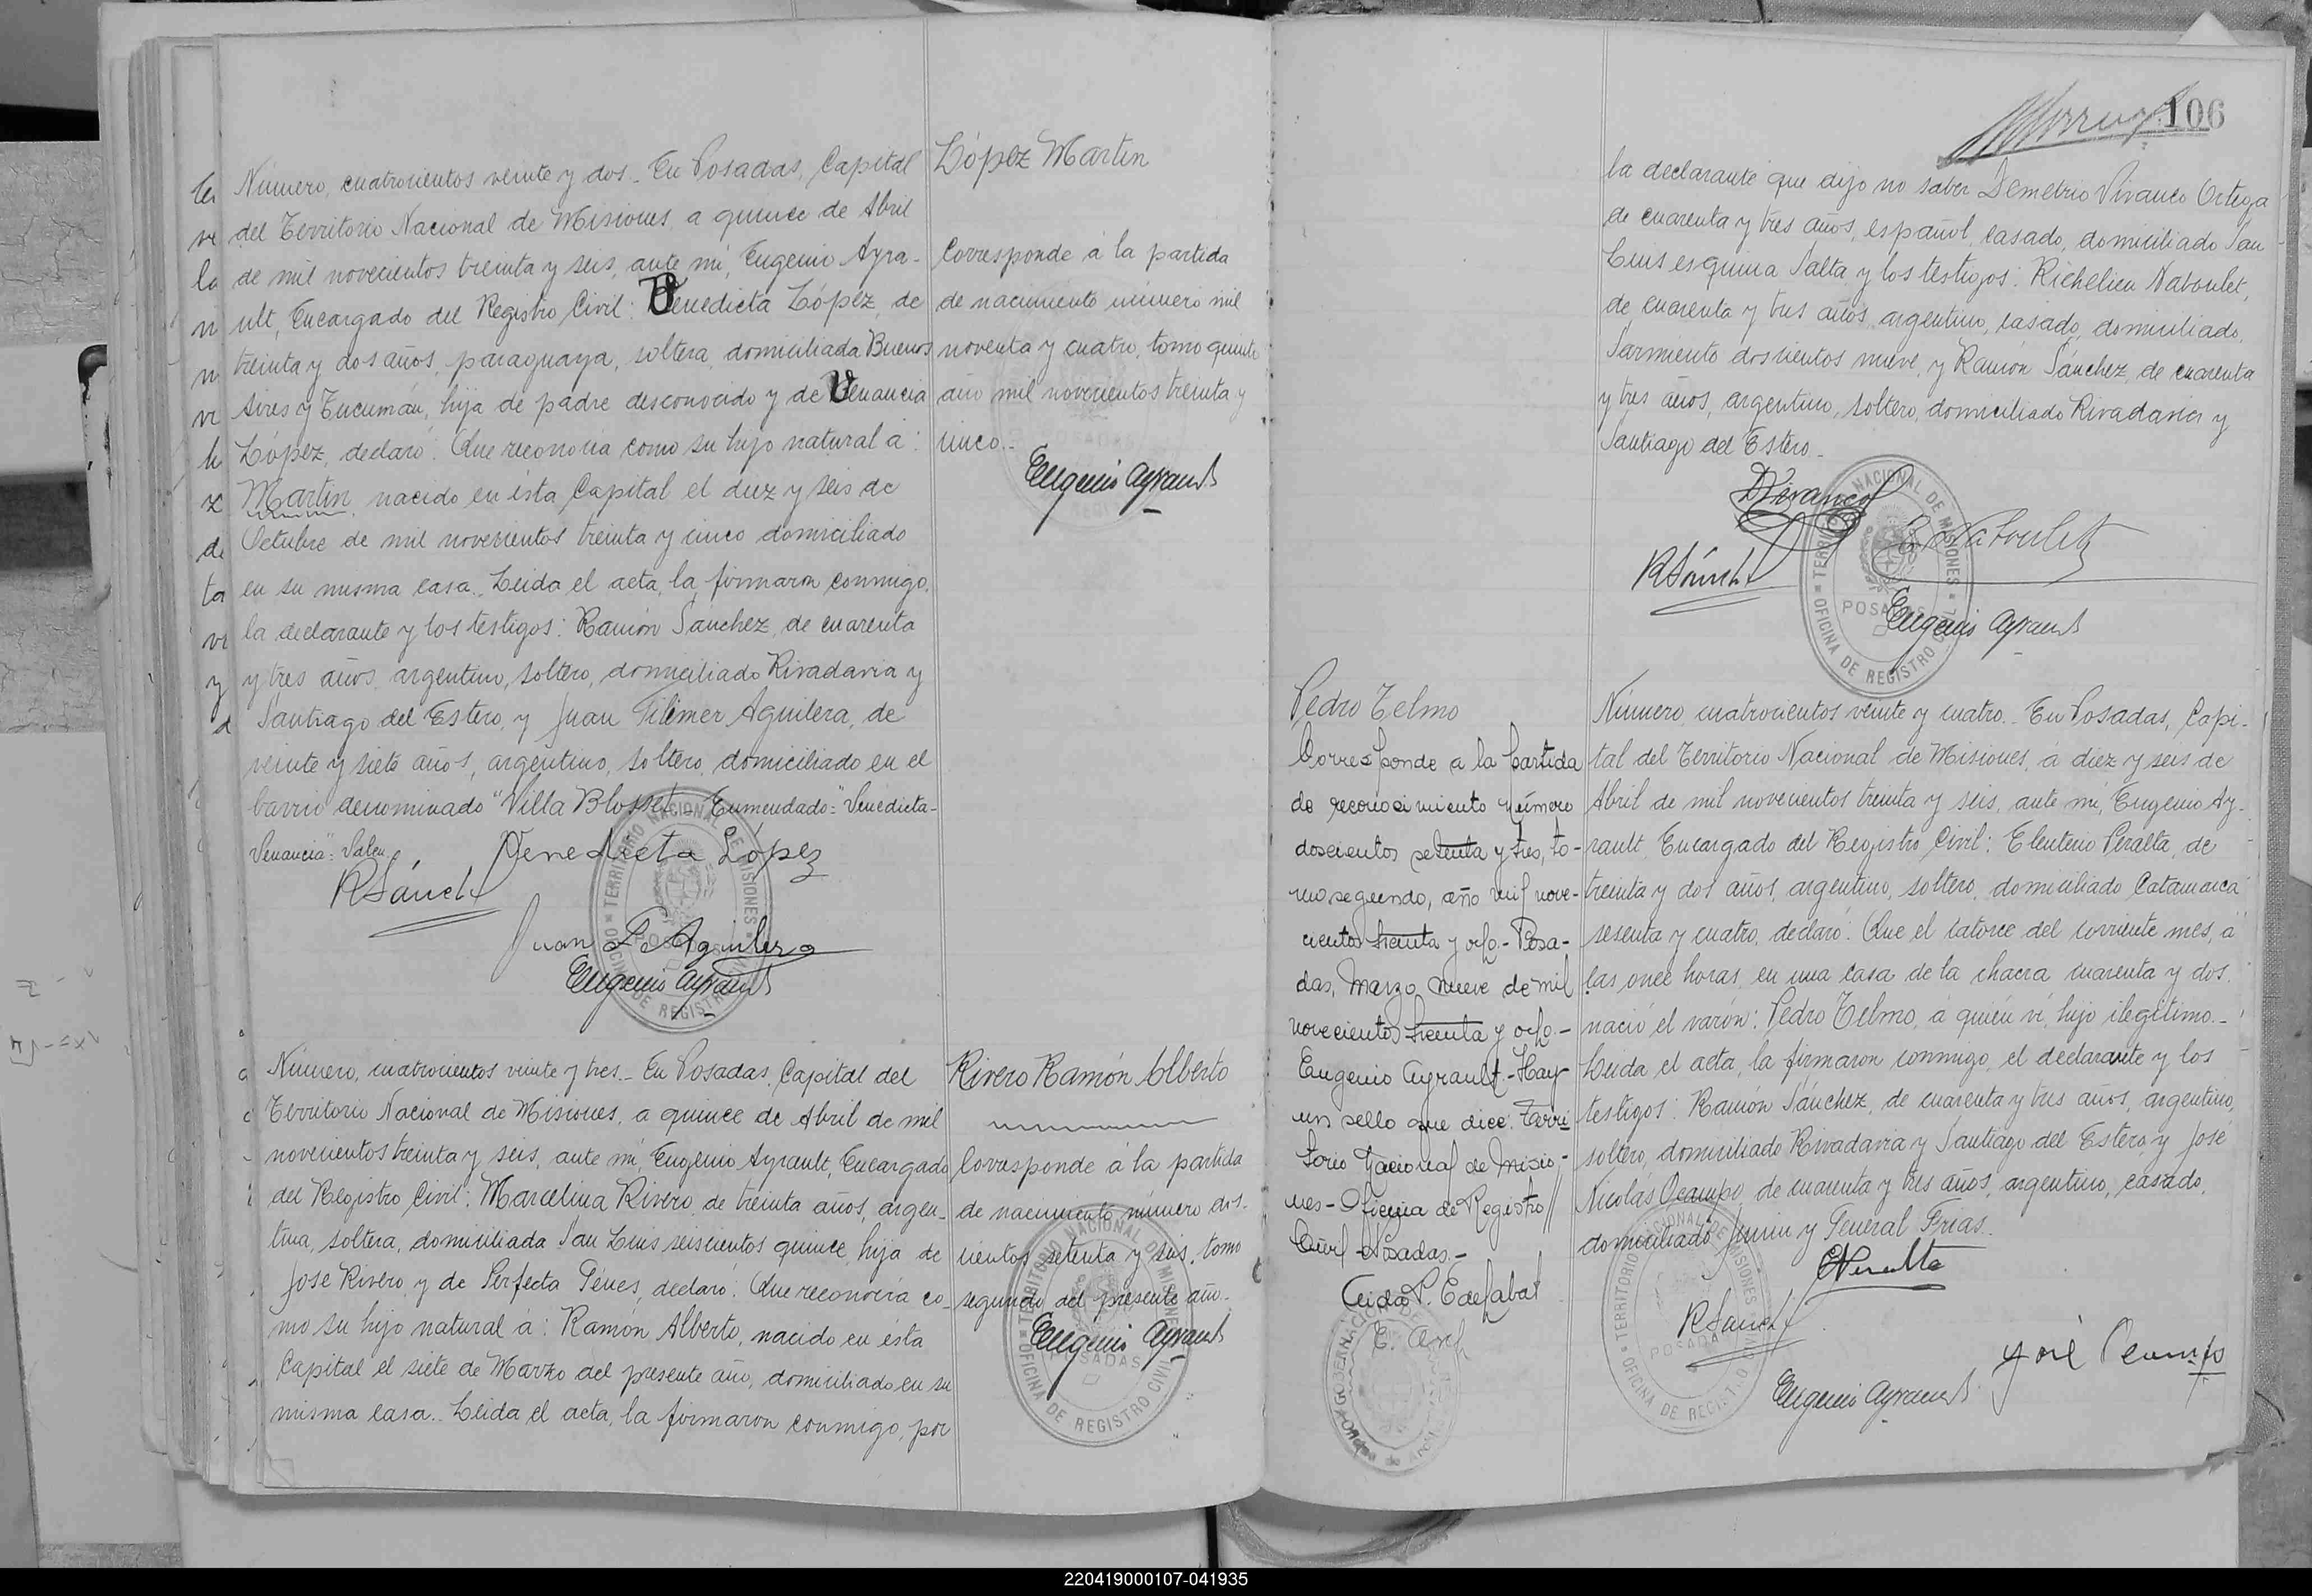 López Martin
Número, cuatrocientos veinte y dos.- En Posadas, Capital
del Territorio Nacional de Misiones, a quince de Abril
de mil novecientos treinta y seis, ante mi, Eugenio Ayra-
ult, Encargado del Registro Civil: Benedicta López, de
treinta y dos años, paraguaya, soltera, domiciliada Buenos
Aires y Tucumán, hija de padre desconocido y de Venancia
López, declaró: Que reconocia como su hijo natural á:
Martin, nacido en ésta Capital el diez y seis de
Octubre de mil novecientos treinta y cinco domiciliado
en su misma casa. Leida el acta, la firmaron conmigo,
la declarante y los testigos: Ramón Sánchez, de cuarenta
y tres años, argentino, soltero, domiciliado Rivadavia y
Santiago del Estero, y Juan Aguilera, de
veinte y siete años, argentino, soltero, domiciliado en el
barrio denominado "Villa Blosset. Enmendado="Benedicta-
Venancia": Valen.
Benedicta López
RSánch
Juan F. Aguilera
Eugenio Ayrault
Corresponde á la partida
de nacimiento número mil
noventa y cuatro, tomo quinto
año mil novecientos treinta y
cinco.-
Eugenio Ayrault
Rivero Ramón Alberto
Número, cuatrocientos veinte y tres.- En Posadas, Capital del
Territorio Nacional de Misiones, a quince de Abril de mil
novecientos treinta y seis, ante mi, Eugenio Ayrault, Encargado
del Registro Civil: Marcelina Rivero, de treinta años, argen-
tina, soltera, domiciliada San Luis seiscientos quince, hija de
José Rivero y de Perfecta, declaró: Que reconocia co-
mo su hijo natural á: Ramón Alberto, nacido en ésta
Capital el siete de Marzo del presente año, domiciliado en su
misma casa.. Leida el acta, la firmaron conmigo, por
Corresponde á la partida
de nacimiento número dos-
cientos setenta y seis, tomo
segundo del presente año.-
Eugenio Ayrault
106
la declarante que dijo no saber Demetrio Vivanco Ortega
de cuarenta y tres años, español, casado, domiciliado San
Luis esquina Salta y los testigos: Richelieu Naboulet,
de cuarenta y tres años, argentino, casado, domiciliado,
Sarmiento doscientos nueve, y Ramón Sánchez, de cuarenta
y tres años, argentino, soltero, domiciliado Rivadavia y
Santiago del Estero.-
DVivanco
R Naboulet
RSánch
Eugenio Ayrault
TERRITORIO NACIONAL DE MISIONES
POSADAS
OFICINA DE REGISTRO CIVIL
Pedro Telmo
Corresponde a la partida
de reconocimiento número
doscientos setenta y tres, to-
mo segundo, año mil nove-
cientos treinta y ocho.- Posa-
das, Marzo nueve de mil
novecientos treinta y ocho.-
Eugenio Ayrault.- Hay
un sello que dice: Terri
torio Nacional de Misio-
nes- Oficina de Registro //
Civil - Posadas.-
Número, cuatrocientos veinte y cuatro.- En Posadas, Capi-
tal del Territorio Nacional de Misiones, á diez y seis de
Abril de mil novecientos treinta y seis, ante mi, Eugenio Ay-
rault, Encargado del Registro Civil: Eleuterio Peralta, de
treinta y dos años, argentino, soltero, domiciliado Catamarca
sesenta y cuatro, declaró: Que el catorce del corriente mes, á
las once horas, en una casa de la chacra cuarenta y dos,
nació el varón: Pedro Telmo, á quién vi, hijo ilegitimo.-
Leida el acta, la firmaron conmigo, el declarante y los
testigos: Ramón Sánchez, de cuarenta y tres años, argentino,
soltero, domiciliado Rivadavia y Santiago del Estero, y José
Nicolás Ocampo, de cuarenta y tres años, argentino, casado,
domiciliado Junin y General Frias.
EPeralta
RSánch
José Ocampo
Eugenio Ayrault
220419000107-041935